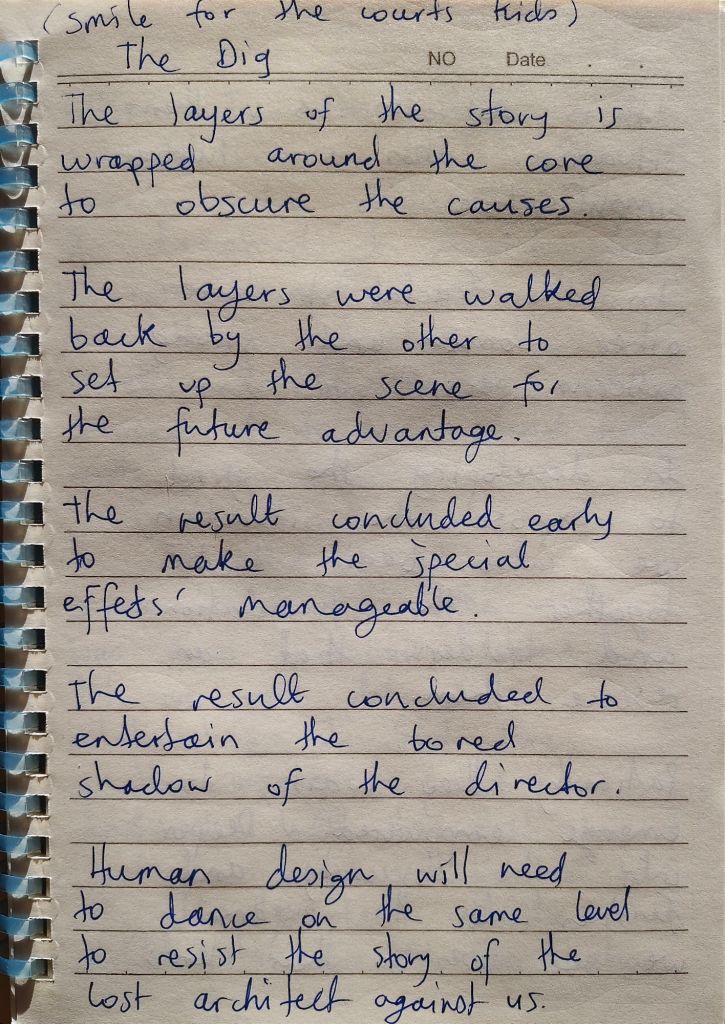 (smile for the courts kids)
The Dig
NO Date . .
The layers of the story is
wrapped around the core
to obscure the causes.
The layers were walked
back by the other to
set up the scene for
the future advantage.
The result concluded early
to make the special
effets' manageable.
The result concluded to
entertain the bored
shadow of the director.
Human design will need
to dance on the same level
to resist the story of the
lost architect against us.